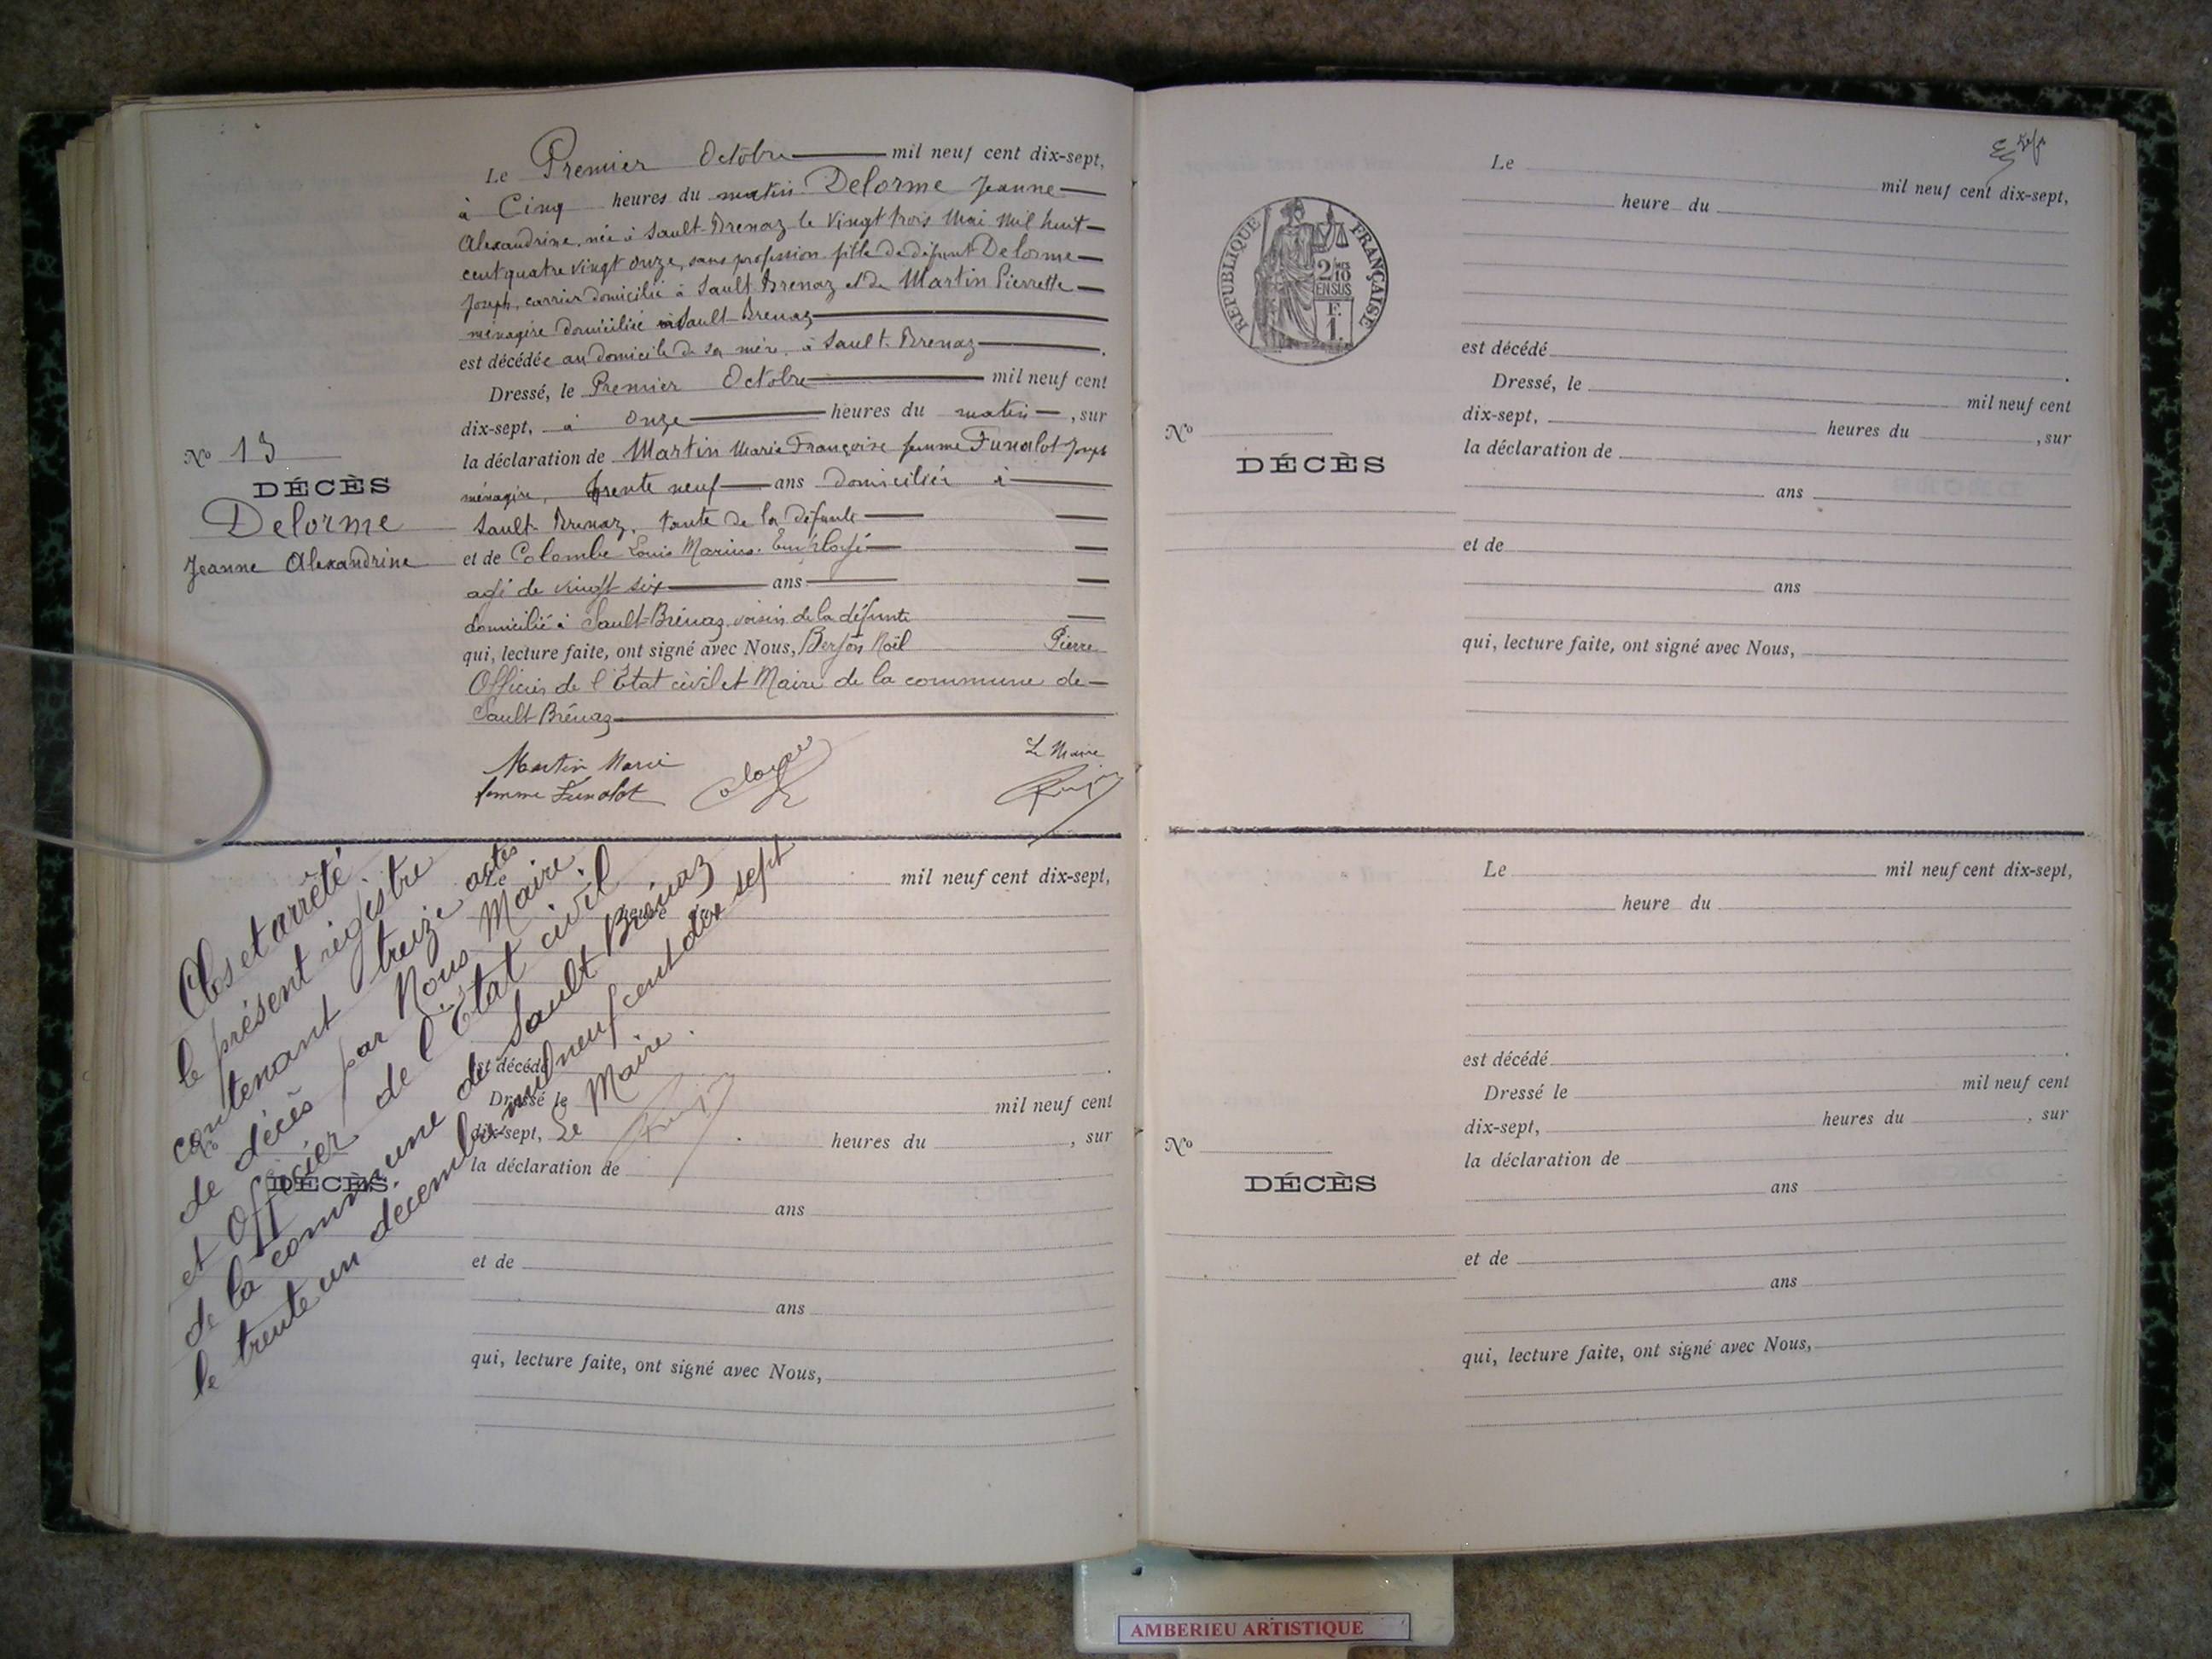 Le Premier Octobre mil neuf cent dix-sept,
à Cinq heures du matin Delorme Jeanne
Alexandrine, née à Sault-Brenaz le Vingt trois Mai Mil huit
cent quatre vingt onze, sans profession fille de défunt Delorme
Joseph, carrier domicilié à Sault Brenaz et de Martin Pierrette
ménagère domiciliée à Sault Brenaz
est décédée au domicile de sa mère, à Sault-Brenaz.
Dressé, le Premier Octobre mil neuf cent
dix-sept, à onze heures du matin, sur
la déclaration de Martin Marie Françoise femme Funalot Joseph
ménagère, trente neuf ans domiciliée à
Sault-Brenaz, tante de la défunte
et de Colombe Louis Marius. Employé
agé de vingt six ans
domicilié à Sault-Brénaz voisin de la défunte
qui, lecture faite, ont signé avec Nous, Noël Pierre
Officier de l'Etat civil et Maire de la commune de
Sault Brénaz
Martin Marie
femme Funalot
Le Maire
No 13
DÉCÈS
Delorme
Jeanne Alexandrine
Clos et arrêté
le présent registre
contenant treize actes
de décès par Nous Maire
et Officier de l'Etat civil
de la commune de Sault Brénaz
le trente un décembre mil neuf cent dix sept
Le Maire.
Le mil neuf cent dix-sept,
heure du
est décédé
Dressé le mil neuf cent
dix-sept, heures du , sur
la déclaration de
ans
et de
ans
qui, lecture faite, ont signé avec Nous,
No
DÉCÈS
Le mil neuf cent dix-sept,
heure du
REPUBLIQUE FRANÇAISE
2/10MES
EN SUS
F.
1.
est décédé
Dressé, le mil neuf cent
dix-sept, heures du , sur
la déclaration de
ans
et de
ans
qui, lecture faite, ont signé avec Nous,
No
DÉCÈS
Le mil neuf cent dix-sept,
heure du
est décédé
Dressé le mil neuf cent
dix-sept, heures du , sur
la déclaration de
ans
et de
ans
qui, lecture faite, ont signé avec Nous,
No
DÉCÈS
AMBERIEU ARTISTIQUE